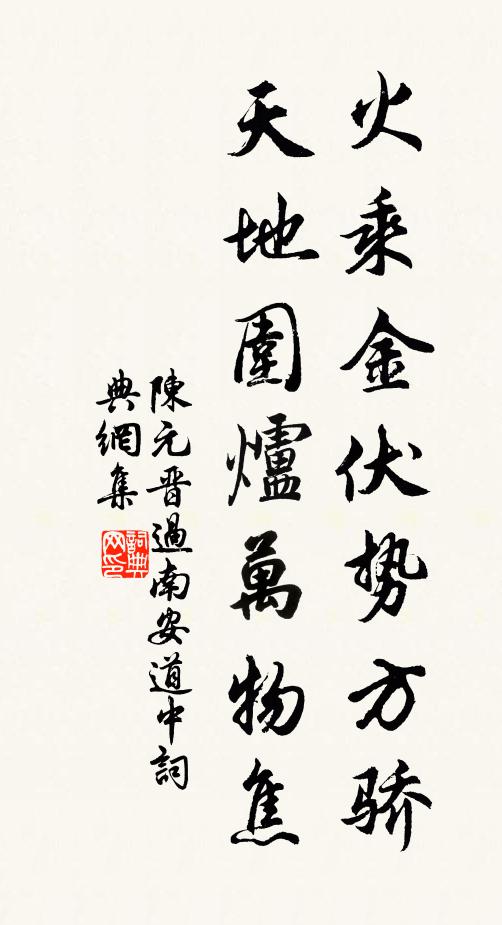 火乘金伏势方骄
天地围爐萬物焦
陳元晋過南安道中詞
典網集
詞典
网印